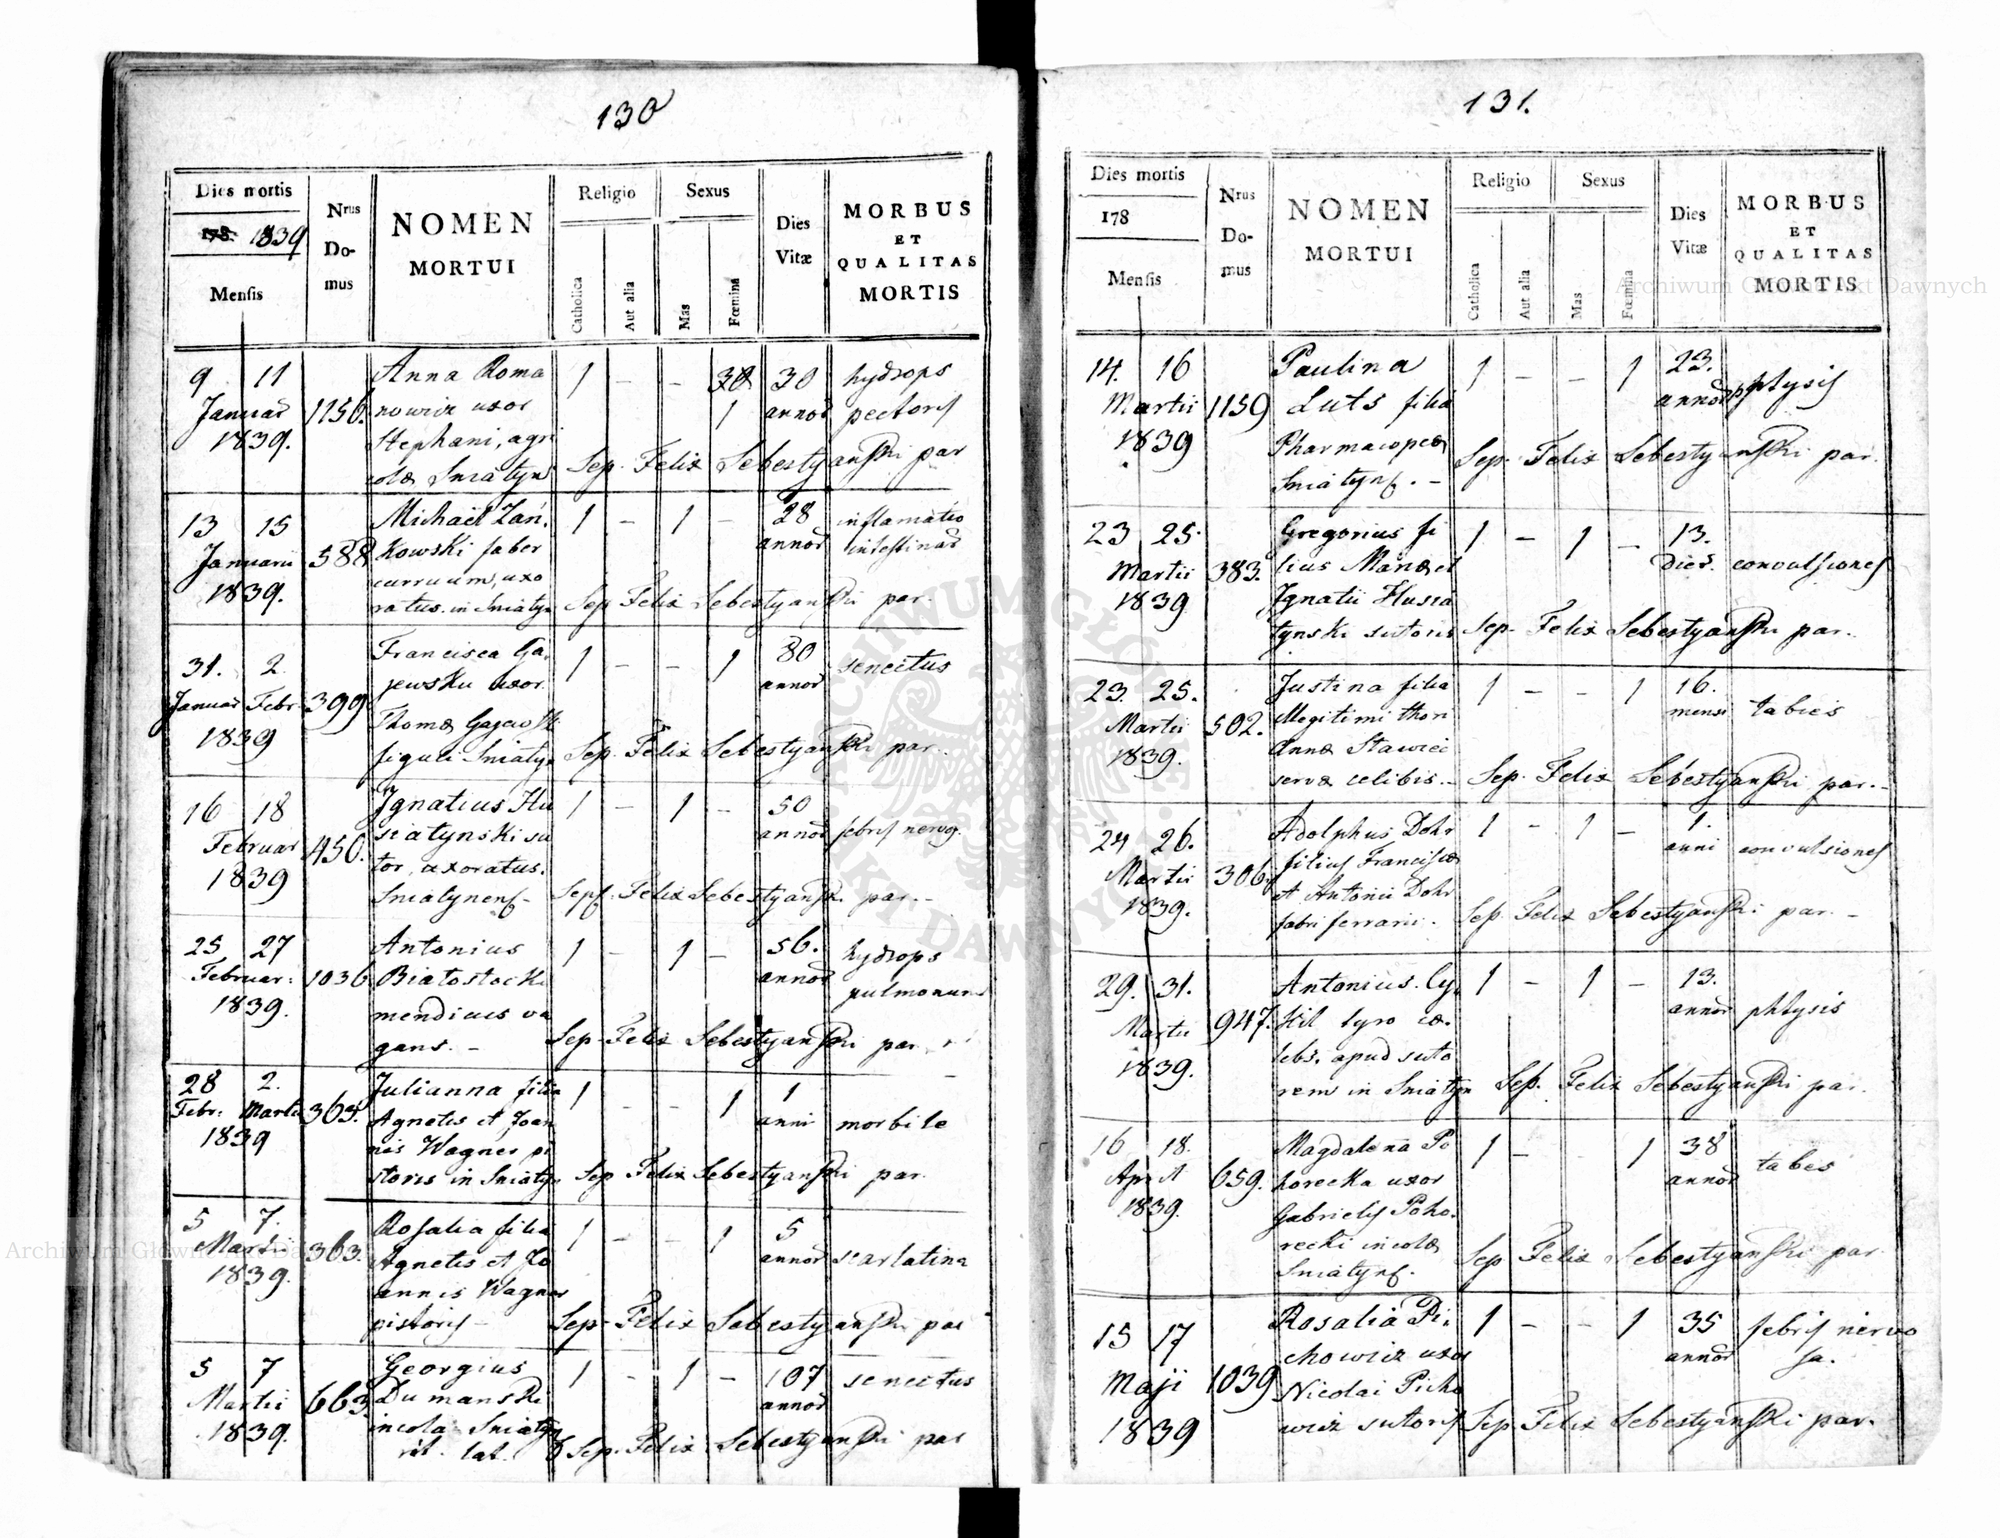 130
Dies mortis
178. 1839
Mensis
Nrus
Do-
mus
NOMEN
MORTUI
Religio
Catholica
Aut alia
Sexus
Mas
Fœmina
Dies
Vitæ
MORBUS
ET
QUALITAS
MORTIS
9 11
Januar
1839.
1156.
Anna Roma
nowicz uxor
Stephani, agri
colæ Sniatyn
1 - - 30 1
30
annor
hydrops
pectoris
Sep. Felix Sebestyański par
13 15
Januarii
1839.
588
Michaël Zan.
kowski faber
curruum, uxo
ratus. in Sniatyn
1 - 1 -
28
annor
inflamatio
intestinar
Sep Felix Sebestyański par.
31. 2.
Januar Febr
1839
399
Francisca Ga.
jewska uxor
Thomæ Gajewsk
figuli Sniatyn
1 - - 1
80
annor
senectus
Sep. Felix Sebestyański par.
16 18
Februar
1839
450.
Ignatius Hu
siatynski su
tor, uxoratus.
Sniatynens.
1 - 1 -
50
annor
febris nervo.
Sep. Felix Sebestyański par. -
25 27
Februar:
1839.
1036
Antonius
Białostocki
mendicus va
gans. -
1 - 1 -
56.
annor
hydrops
pulmonum
Sep. Felix Sebestyański par
28 2.
Febr: Martii
1839
363.
Julianna filia
Agnetis et Joan
nis Wagner pi
storis in Sniatyn
1 - - 1
1
anni
morbile
Sep Felix Sebestyański par.
5 7.
Martii
1839.
363.
Rosalia filia
Agnetis et Jo
annis Wagner
pistoris -
1 - - 1
5
annor
scarlatina
Sep. Felix Sebestyański par
5 7
Martii
1839.
663
Georgius
Dumanski
incola Sniatyn
rit. lat.
1 - 1 -
107
annor
senectus
Sep. Felix Sebestyański par
131.
Dies mortis
178
Mensis
Nrus
Do-
mus
NOMEN
MORTUI
Religio
Catholica
Aut alia
Sexus
Mas
Fœmina
Dies
Vitæ
MORBUS
ET
QUALITAS
MORTIS
14. 16
Martii
1839
1159
Paulina
Luts filia
Pharmacopeæ
Sniatyns. -
1 - - 1
23.
annor
phtysis
Sep. Felix Sebestyański par.
23 25.
Martii
1839
383.
Gregorius fi
lius Mariæ et
Ignatii Husia
tynski sutoris
1 - 1 -
13.
dier.
convulsiones
Sep. Felix Sebestyański par..
23. 25.
Martii
1839.
502.
Justina filia
illegitimi thori
Annæ Stawiei
servæ celibis. -
1 - - 1
16.
mensi
tabies
Sep. Felix Sebestyański par. -
24 26.
Martii
1839.
306.
Adolphus Dohr
filius Franciscæ
et Antonii Dohr
fabri ferrarii.
1 - 1 -
1.
anni
convulsiones
Sep. Felix Sebestyański par. -
29. 31.
Martii
1839.
947.
Antonius. Cy.
kil tyro cæ.
lebs. apud suto
rem in Sniatyn
1 - 1 -
13.
annor
phtysis
Sep. Felix Sebestyański par.
16 18.
April
1839.
659.
Magdalena Po
horecka uxor
Gabrielis Poho.
recki incolæ
Sniatyns.
1 - - 1
38
annor
tabes
Sep Felix Sebestyański par.
15 17
Maji
1839
1039
Rosalia Pi.
chowicz uxor
Nicolai Picho
wicz sutoris
1 - - 1
35
annor
febris nervo
sa.
Sep. Felix Sebestyański par.
Archiwum Główne Akt Dawnych
Archiwum Główne Akt Dawnych
ARCHIWUM GŁÓWNE AKT DAWNYCH